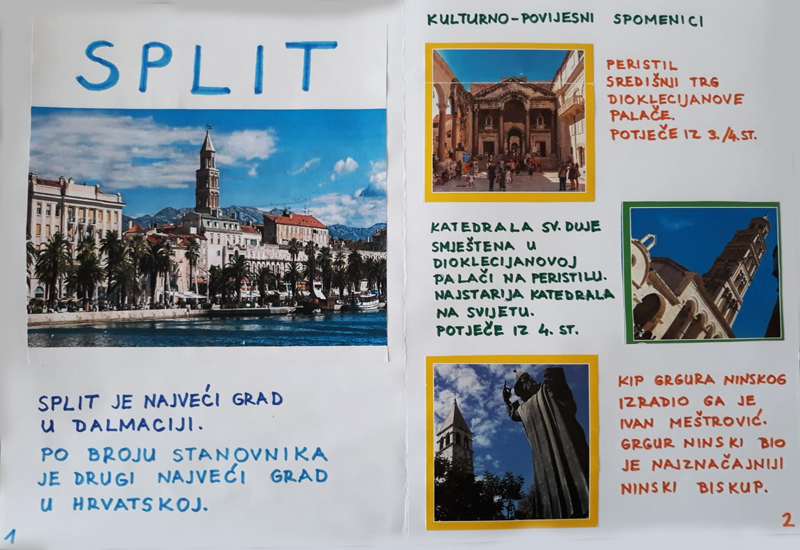 SPLIT
SPLIT JE NAJVEĆI GRAD
U DALMACIJI.
PO BROJU STANOVNIKA
JE DRUGI NAJVEĆI GRAD
U HRVATSKOJ.
1
KULTURNO-POVIJESNI SPOMENICI
PERISTIL
SREDIŠNJI TRG
DIOKLECIJANOVE
PALAČE.
POTJEČE IZ 3./4.ST.
KATEDRALA SV. DUJE
SMJEŠTENA U
DIOKLECIJANOVOJ
PALAČI NA PERISTILU.
NAJSTARIJA KATEDRALA
NA SVIJETU.
POTJEČE IZ 4. ST.
KIP GRGURA NINSKOG
IZRADIO GA JE
IVAN MEŠTROVIĆ.
GRGUR NINSKI BIO
JE NAJZNAČAJNIJI
NINSKI BISKUP.
2